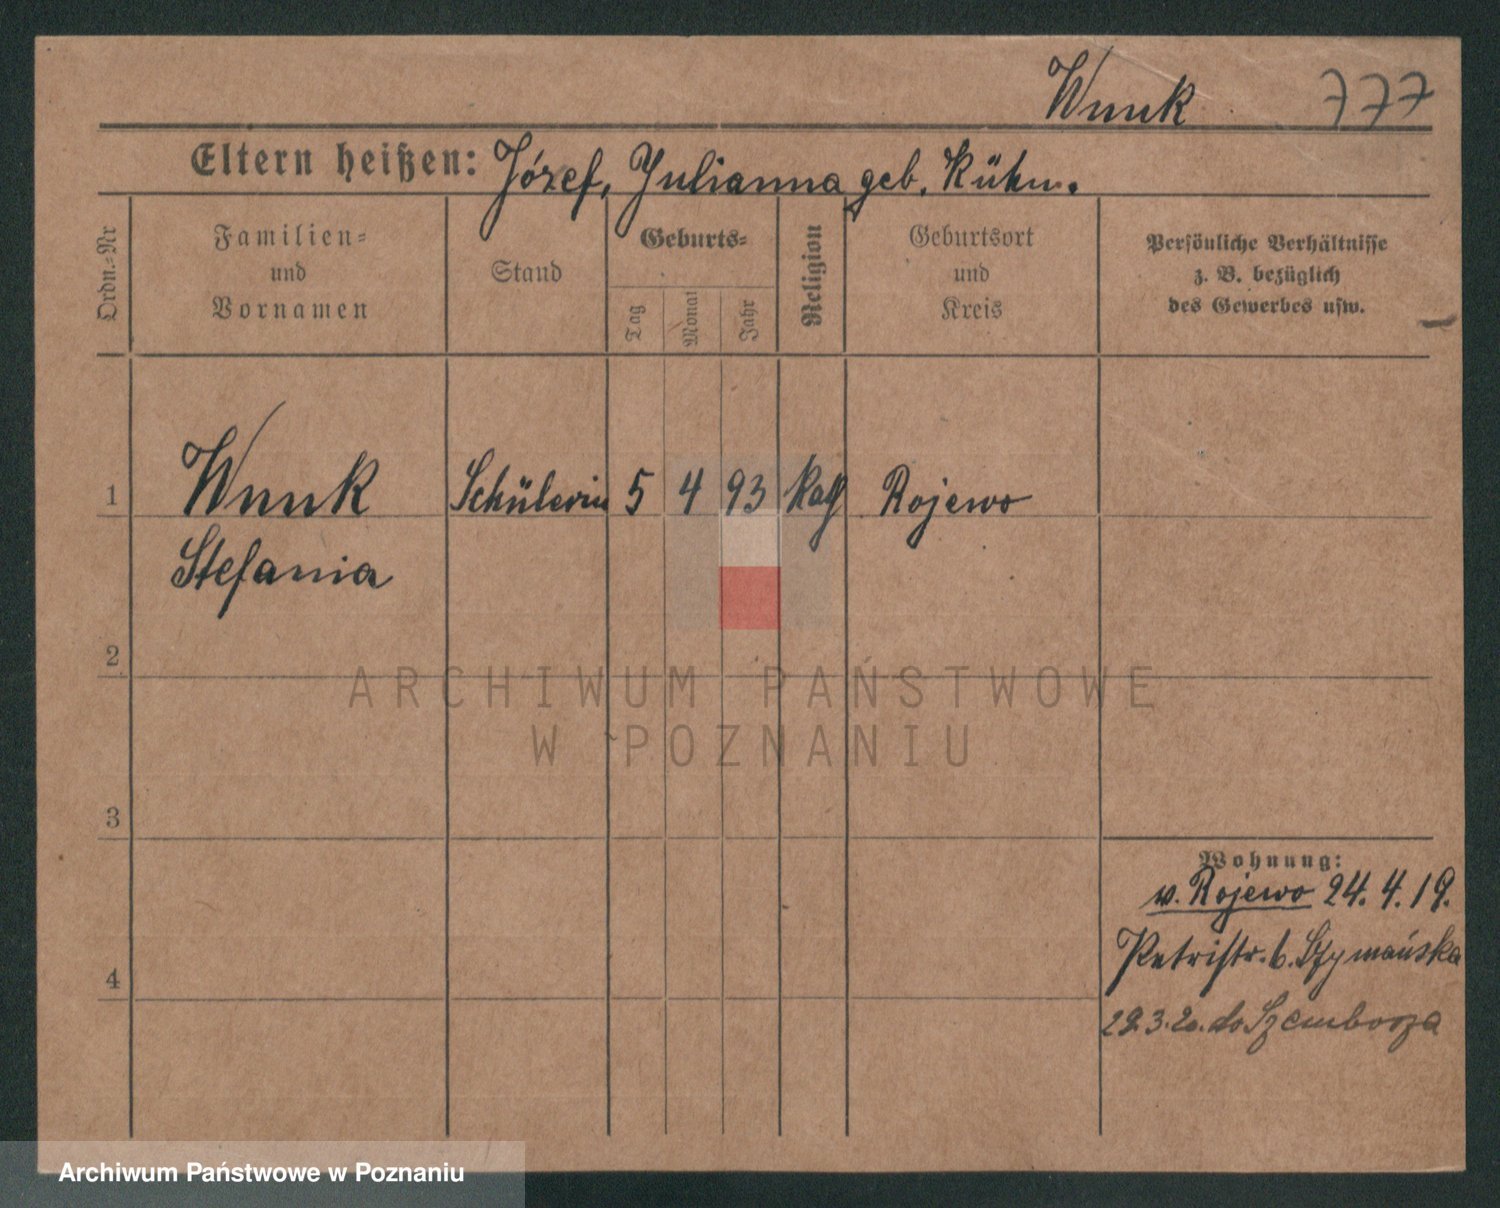 Wnuk 777
Eltern heißen: Józef, Julianna geb. Kühn.
Ordn.-Nr
Familien-
und
Vornamen
Stand
Geburts-
Tag
Monat
Jahr
Religion
Geburtsort
und
Kreis
Persönliche Verhältnisse
z. B. bezüglich
des Gewerbes usw.
1 Wnuk Schülerin 5 4 93 kath Rojewo
Stefania
2
ARCHIWUM PAŃSTWOWE
W POZNANIU
3
Wohnung:
v. Rojewo 24.4.19.
Petristr. 6. Szymańska
4
29.3.20. do Szemborza
Archiwum Państwowe w Poznaniu